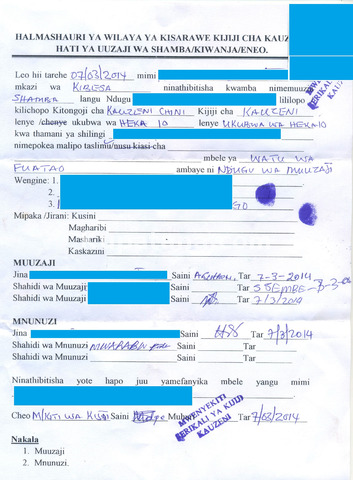 HALMASHAURI YA WILAYA YA KISARAWE KIJIJI CHA KAUZ
HATI YA UUZAJI WA SHAMBA/KIWANJA/ENEO.
Leo hii tarehe 07/03/2014 mimi
mkazi wa KIBESA ninathibitisha kwamba nimemuuz
SHAMBA langu Ndugu lililopo
kilichopo Kitongoji cha KAUZENI CHINI Kijiji cha KAUZENI
lenye /chenye ukubwa wa HEKA 10 lenye UKUBWA WA HEKA 10
kwa thamani ya shilingi
nimepokea malipo taslimu/nusu kiasi cha
mbele ya WATU WA
FUATAO ambaye ni NDUGU WA MUUZAJI
Wengine: 1.
2.
3.
Mipaka /Jirani: Kusini
Magharibi
Mashariki
Kaskazini
MUUZAJI
Jina Saini Tar 7-3-2014
Shahidi wa Muuzaji Saini Tar
Shahidi wa Muuzaji Saini Tar 7/3/2014
MNUNUZI
Jina Saini Tar 7/3/2014
Shahidi wa Mnunuzi Saini Tar
Shahidi wa Mnunuzi Saini Tar
Ninathibitisha yote hapo juu yamefanyika mbele yangu mimi
Cheo M/KITI WA KIJIJI Saini Muhuri Tar 7/03/2014
MWENYEKITI
SERIKALI YA KIJIJI
KAUZENI
Nakala
1. Muuzaji
2. Mnunuzi.